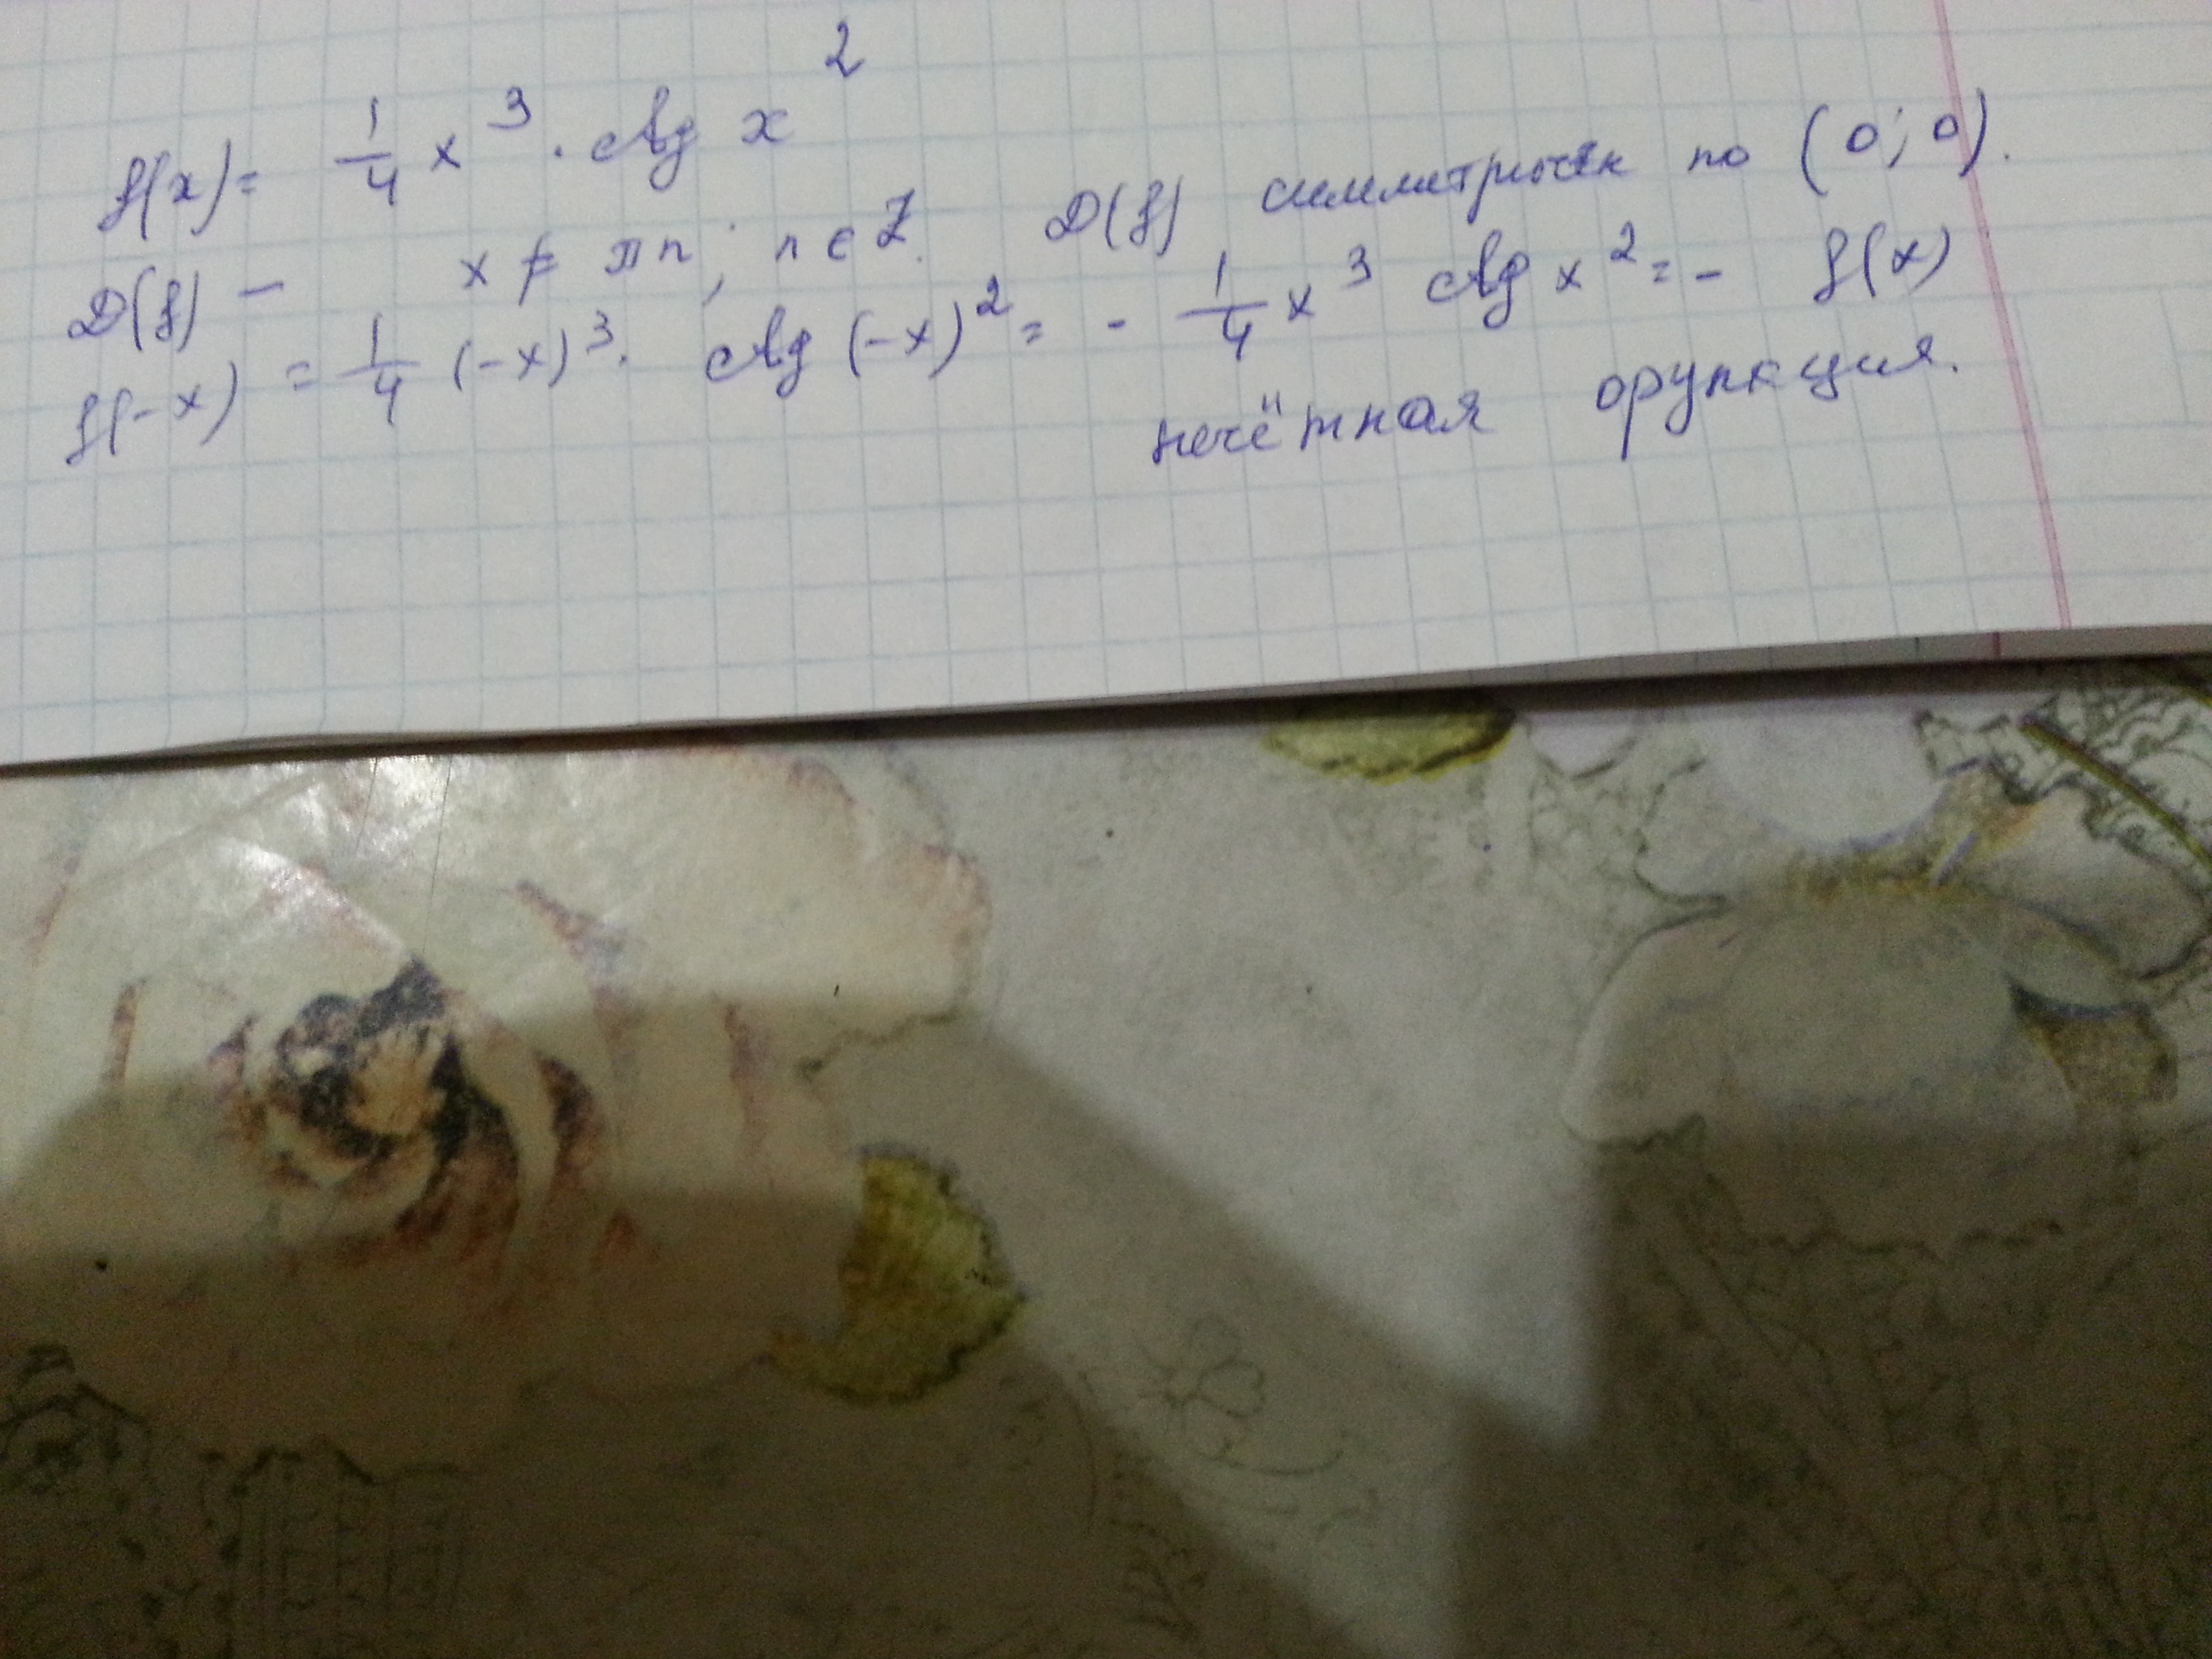 f(x) = 1/4 x³ · ctg x²
D(f) – x ≠ πn; n ∈ Z. D(f) симметричен по (0; 0).
f(-x) = 1/4 (-x)³ · ctg (-x)² = - 1/4 x³ ctg x² = - f(x)
нечётная функция.